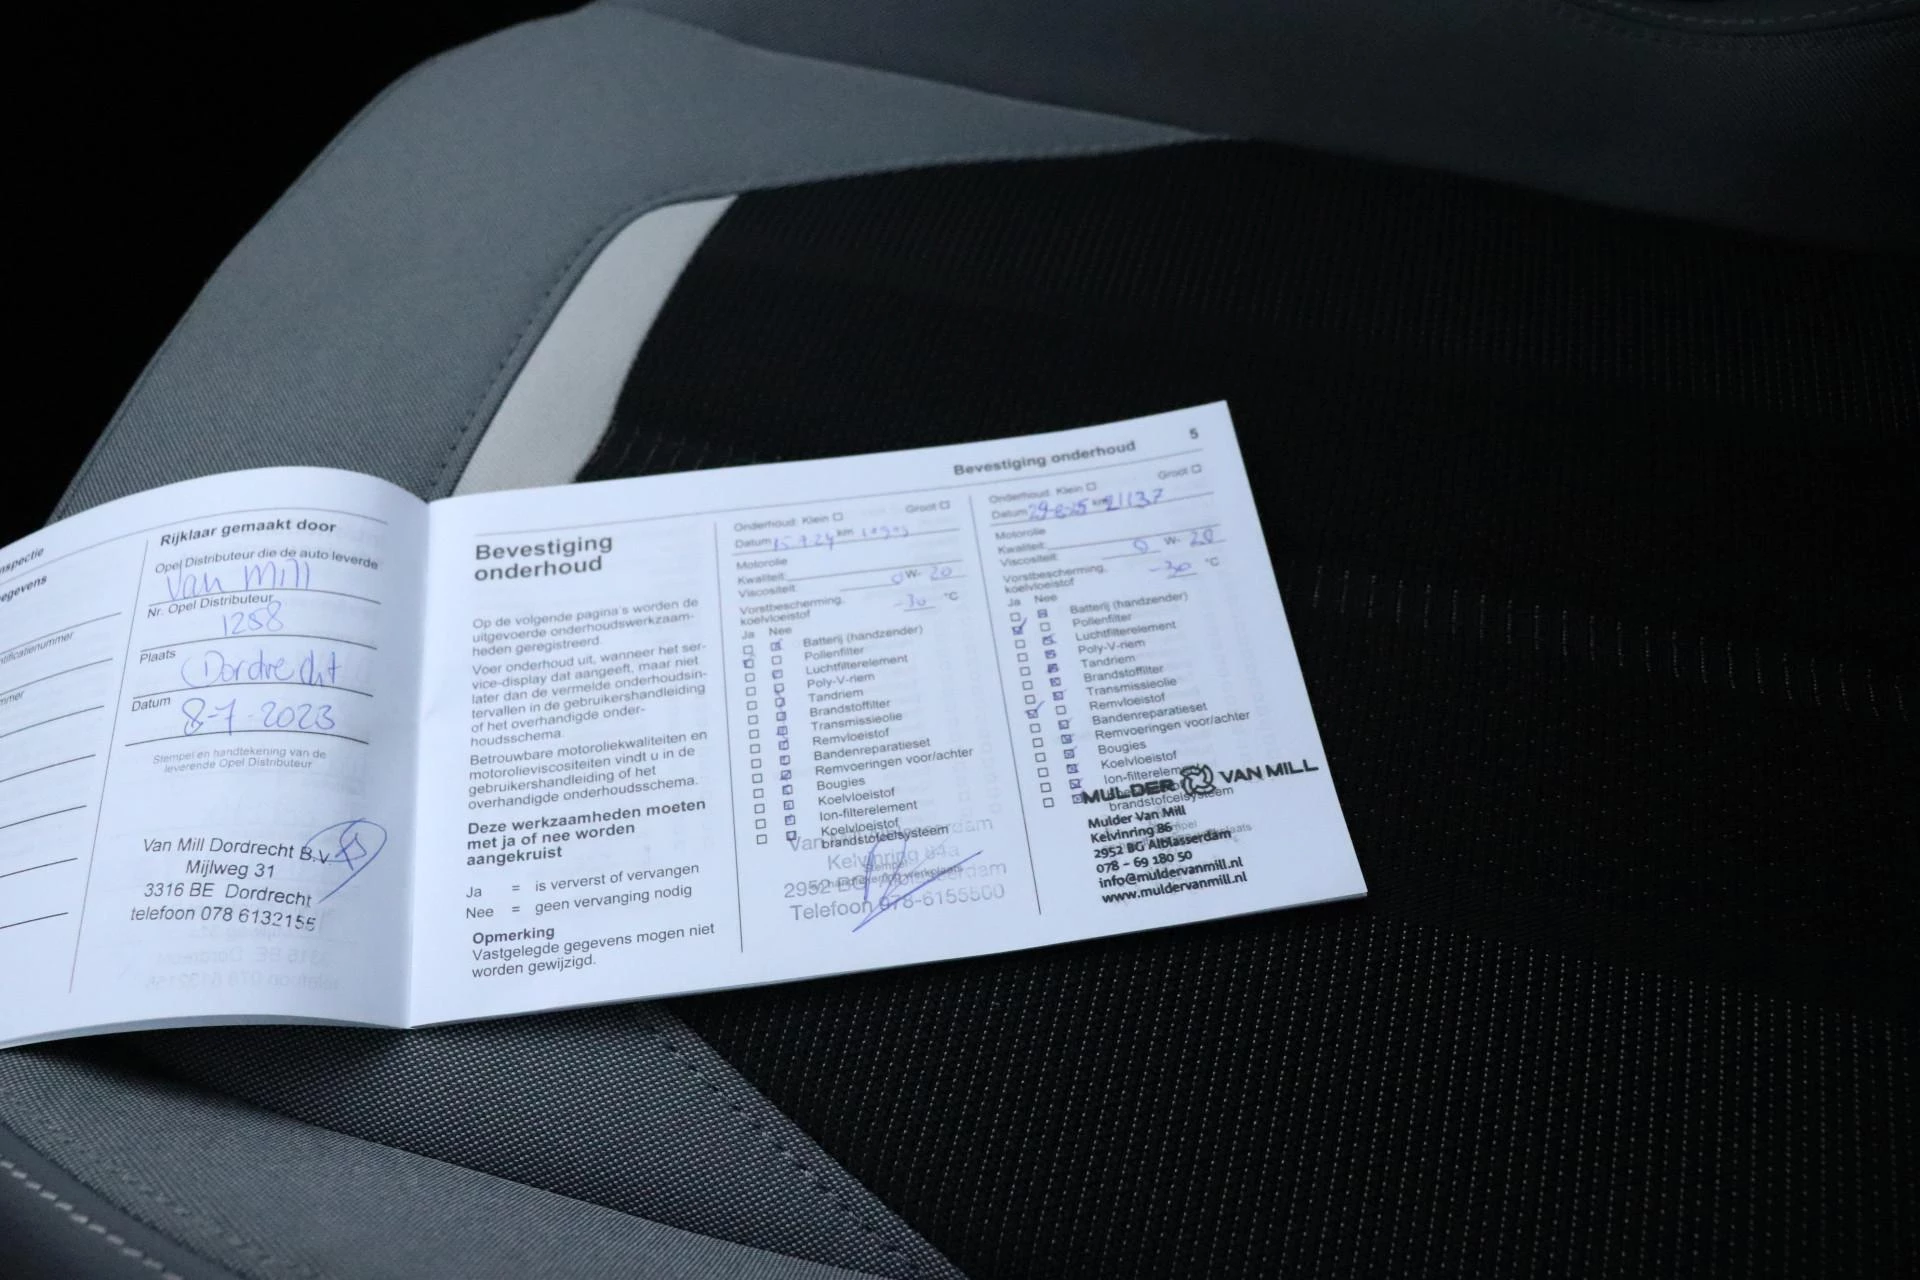 nspectie
egevens
ntificatienummer
mmer
Rijklaar gemaakt door
Opel Distributeur die de auto leverde
Van Mill
Nr. Opel Distributeur
1258
Plaats
Dordrecht
Datum
8-7-2023
Stempel en handtekening van de
leverende Opel Distributeur
Van Mill Dordrecht B.V.
Mijlweg 31
3316 BE Dordrecht
telefoon 078 6132155
Bevestiging
onderhoud
Op de volgende pagina's worden de
uitgevoerde onderhoudswerkzaam-
heden geregistreerd.
Voer onderhoud uit, wanneer het ser-
vice-display dat aangeeft, maar niet
later dan de vermelde onderhoudsin-
tervallen in de gebruikershandleiding
of het overhandigde onder-
houdsschema.
Betrouwbare motoroliekwaliteiten en
motorolieviscositeiten vindt u in de
gebruikershandleiding of het
overhandigde onderhoudsschema.
Deze werkzaamheden moeten
met ja of nee worden
aangekruist
Ja = is ververst of vervangen
Nee = geen vervanging nodig
Opmerking
Vastgelegde gegevens mogen niet
worden gewijzigd.
Bevestiging onderhoud 5
Onderhoud: Klein Groot
Datum km
Motorolie
Kwaliteit:
Viscositeit: 0 W- 20
Vorstbescherming, -30 °C
koelvloeistof
Ja Nee
Batterij (handzender)
Pollenfilter
Luchtfilterelement
Poly-V-riem
Tandriem
Brandstoffilter
Transmissieolie
Remvloeistof
Bandenreparatieset
Remvoeringen voor/achter
Bougies
Koelvloeistof
Ion-filterelement
Koelvloeistof
brandstofcelsysteem
Kelvinring 84a
2952 BG
Telefoon 078-6155500
Onderhoud: Klein Groot
Datum km 21137
Motorolie
Kwaliteit:
Viscositeit: 0 W- 20
Vorstbescherming, -30 °C
koelvloeistof
Ja Nee
Batterij (handzender)
Pollenfilter
Luchtfilterelement
Poly-V-riem
Tandriem
Brandstoffilter
Transmissieolie
Remvloeistof
Bandenreparatieset
Remvoeringen voor/achter
Bougies
Koelvloeistof
Ion-filterelement
brandstofcelsysteem
MULDER VAN MILL
Mulder Van Mill
Kelvinring 86
2952 BG Alblasserdam
078 - 69 180 50
info@muldervanmill.nl
www.muldervanmill.nl